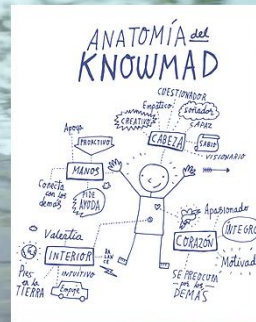 ANATOMÍA del
KNOWMAD
CUESTIONADOR
Empático
soñador
CREATIVO
CAPAZ
CABEZA
SABIO
VISIONARIO
Apoya
PROACTIVO
MANOS
Conecta
con los
demás
PIDE
AYUDA
Valentía
INTERIOR
BA
LAN
CE
INTUITIVO
Pies
en la
TIERRA
Apasionado
ÍNTEGRO
CORAZÓN
Motivad
SE PREOCUPA
por los
DEMÁS